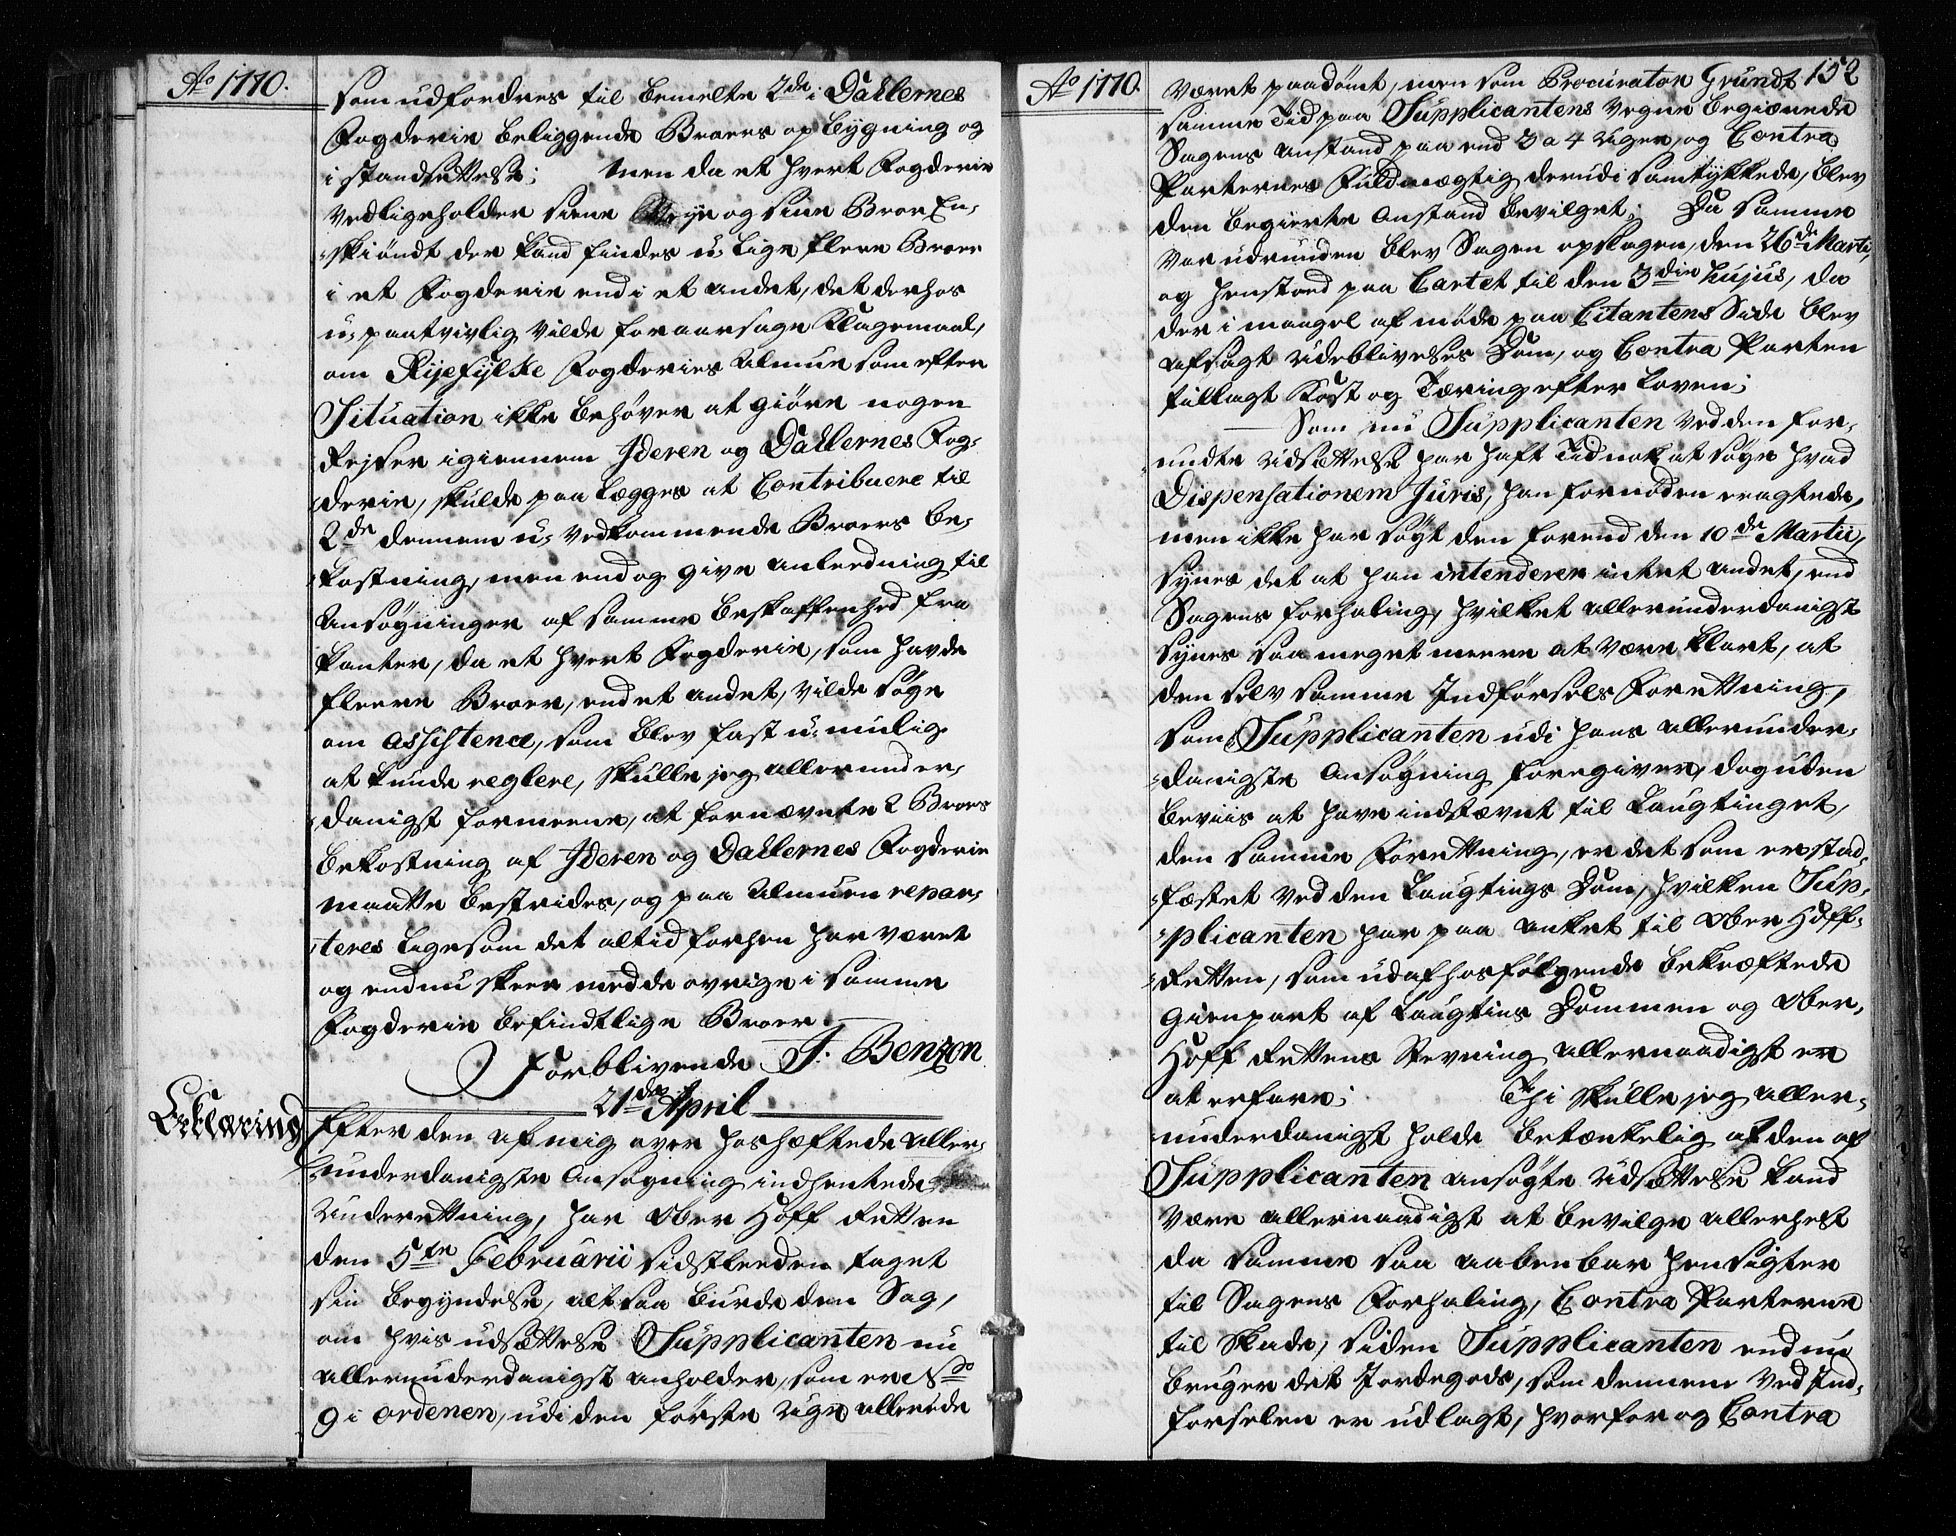 Ao 1770.
som udfordres til bemelte 2de i Dallernes
Fogderie beliggende Broers opbygning og
i standsættelse; Men da et hvert Fogderie
vedligeholder siene Veye og sine Broer En-
skiøndt der kand findes u-lige fleere Broer
i et Fogderie end i et andet, det derhos
u-paatvivlig vilde foraarsage Klagemaal,
om Ryefylke Fogderies Almue som efter
Situation ikke behøver at giøre nogen
Reyser igiennem Jderen og Dallernes Fog-
derie, skulde paa legges at Contribuere til
2de dennem u-vedkommende Broers be-
kostning, men endog give anleedning til
Ansøgninger af samme beskaffenhed fra
kanter, da et hvert Fogderie, som havde
fleere Broer, end et andet, vilde søge
om assistence, som blev fast u-mulig
at kunde reglere, skulle jeg allerunder-
danigst formeene, at fornævnte 2 Broers
bekostning af Jderen og Dallernes Fogderie
maatte bestrides, og paa Almuen repar-
teres ligesom det altid forhen har været
og endnu skeer med de øvrige i samme
Fogderie befindtlige Broer.
Forblivende J. Benzon
21de April
Erklæring
Efter den af mig over hoshæftede aller-
underdanigste Ansøgning indhentede
Underretning, har Ober Hoff Retten
den 5te Februarii sidstleeden taget
sin begyndelse, altsaa burde den Sag,
om hvis udsættelse Supplicanten nu
allerunderdanigst anholder, som er No
9 i ordenen, udi den første Uge allerede
Ao 1770.
152
været paadømt, men som Procurator Grundt
samme Tid paa Supplicantens vegne begiærede
Sagens anstand paa end 3 a 4 Uger, og Contra
Parternes Fuldmægtig derudi samtykkede, blev
den begierte Anstand bevilget; Da samme
var udrunden blev Sagen opslagen, den 26de Martii,
og henstoed paa Cartet til den 3die hujus, da
der i mangel af møde paa Citantens Side blev
afsagt udeblivelses Dom, og Contra Parten
tillagt Kost og Tæring efter Loven;
Som nu Supplicanten ved den for-
undte Udsættelse har haft Tid nok at søge hvad
Dispensationem Juris, han fornøden eragtede,
men ikke har søgt den forend den 10de Martii,
synes det at han intenderer intet andet, end
Sagens forhaling, hvilket allerunderdanigst
synes saa meget meere at være klart, at
den selv samme Indførsels Forretning,
som Supplicanten udi hans allerunder-
danigste Ansøgning foregiver, dog uden
beviis at have indstævnt til Laugtinget,
den samme Forretning, er det som er stad-
fæstet ved den Laugtings Dom, hvilken Sup-
plicanten har paa anket til Ober Hoff-
Retten, som udaf hosfølgende bekræftede
Gienpart af Laugtins Dommen og Ober-
Hoff Rettens Stevning allernaadigst er
at erfare; Thi skulle jeg aller-
underdanigst holde betænkelig at den af
Supplicanten ansøgte Udsættelse kand
være allernaadigst at bevilge allerhelst
da samme saa aabenbar hensigter
til Sagens Forhaling, Contra Parterne
til Skade, siden Supplicanten endnu
bruger det Jordegods, som dennem ved Ind-
førselen er udlagt, hvorfor og Contra